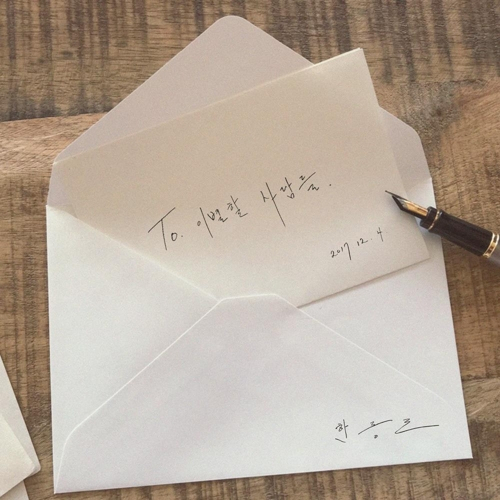 To. 이별할 사람들.
2017. 12. 4
한 응 르